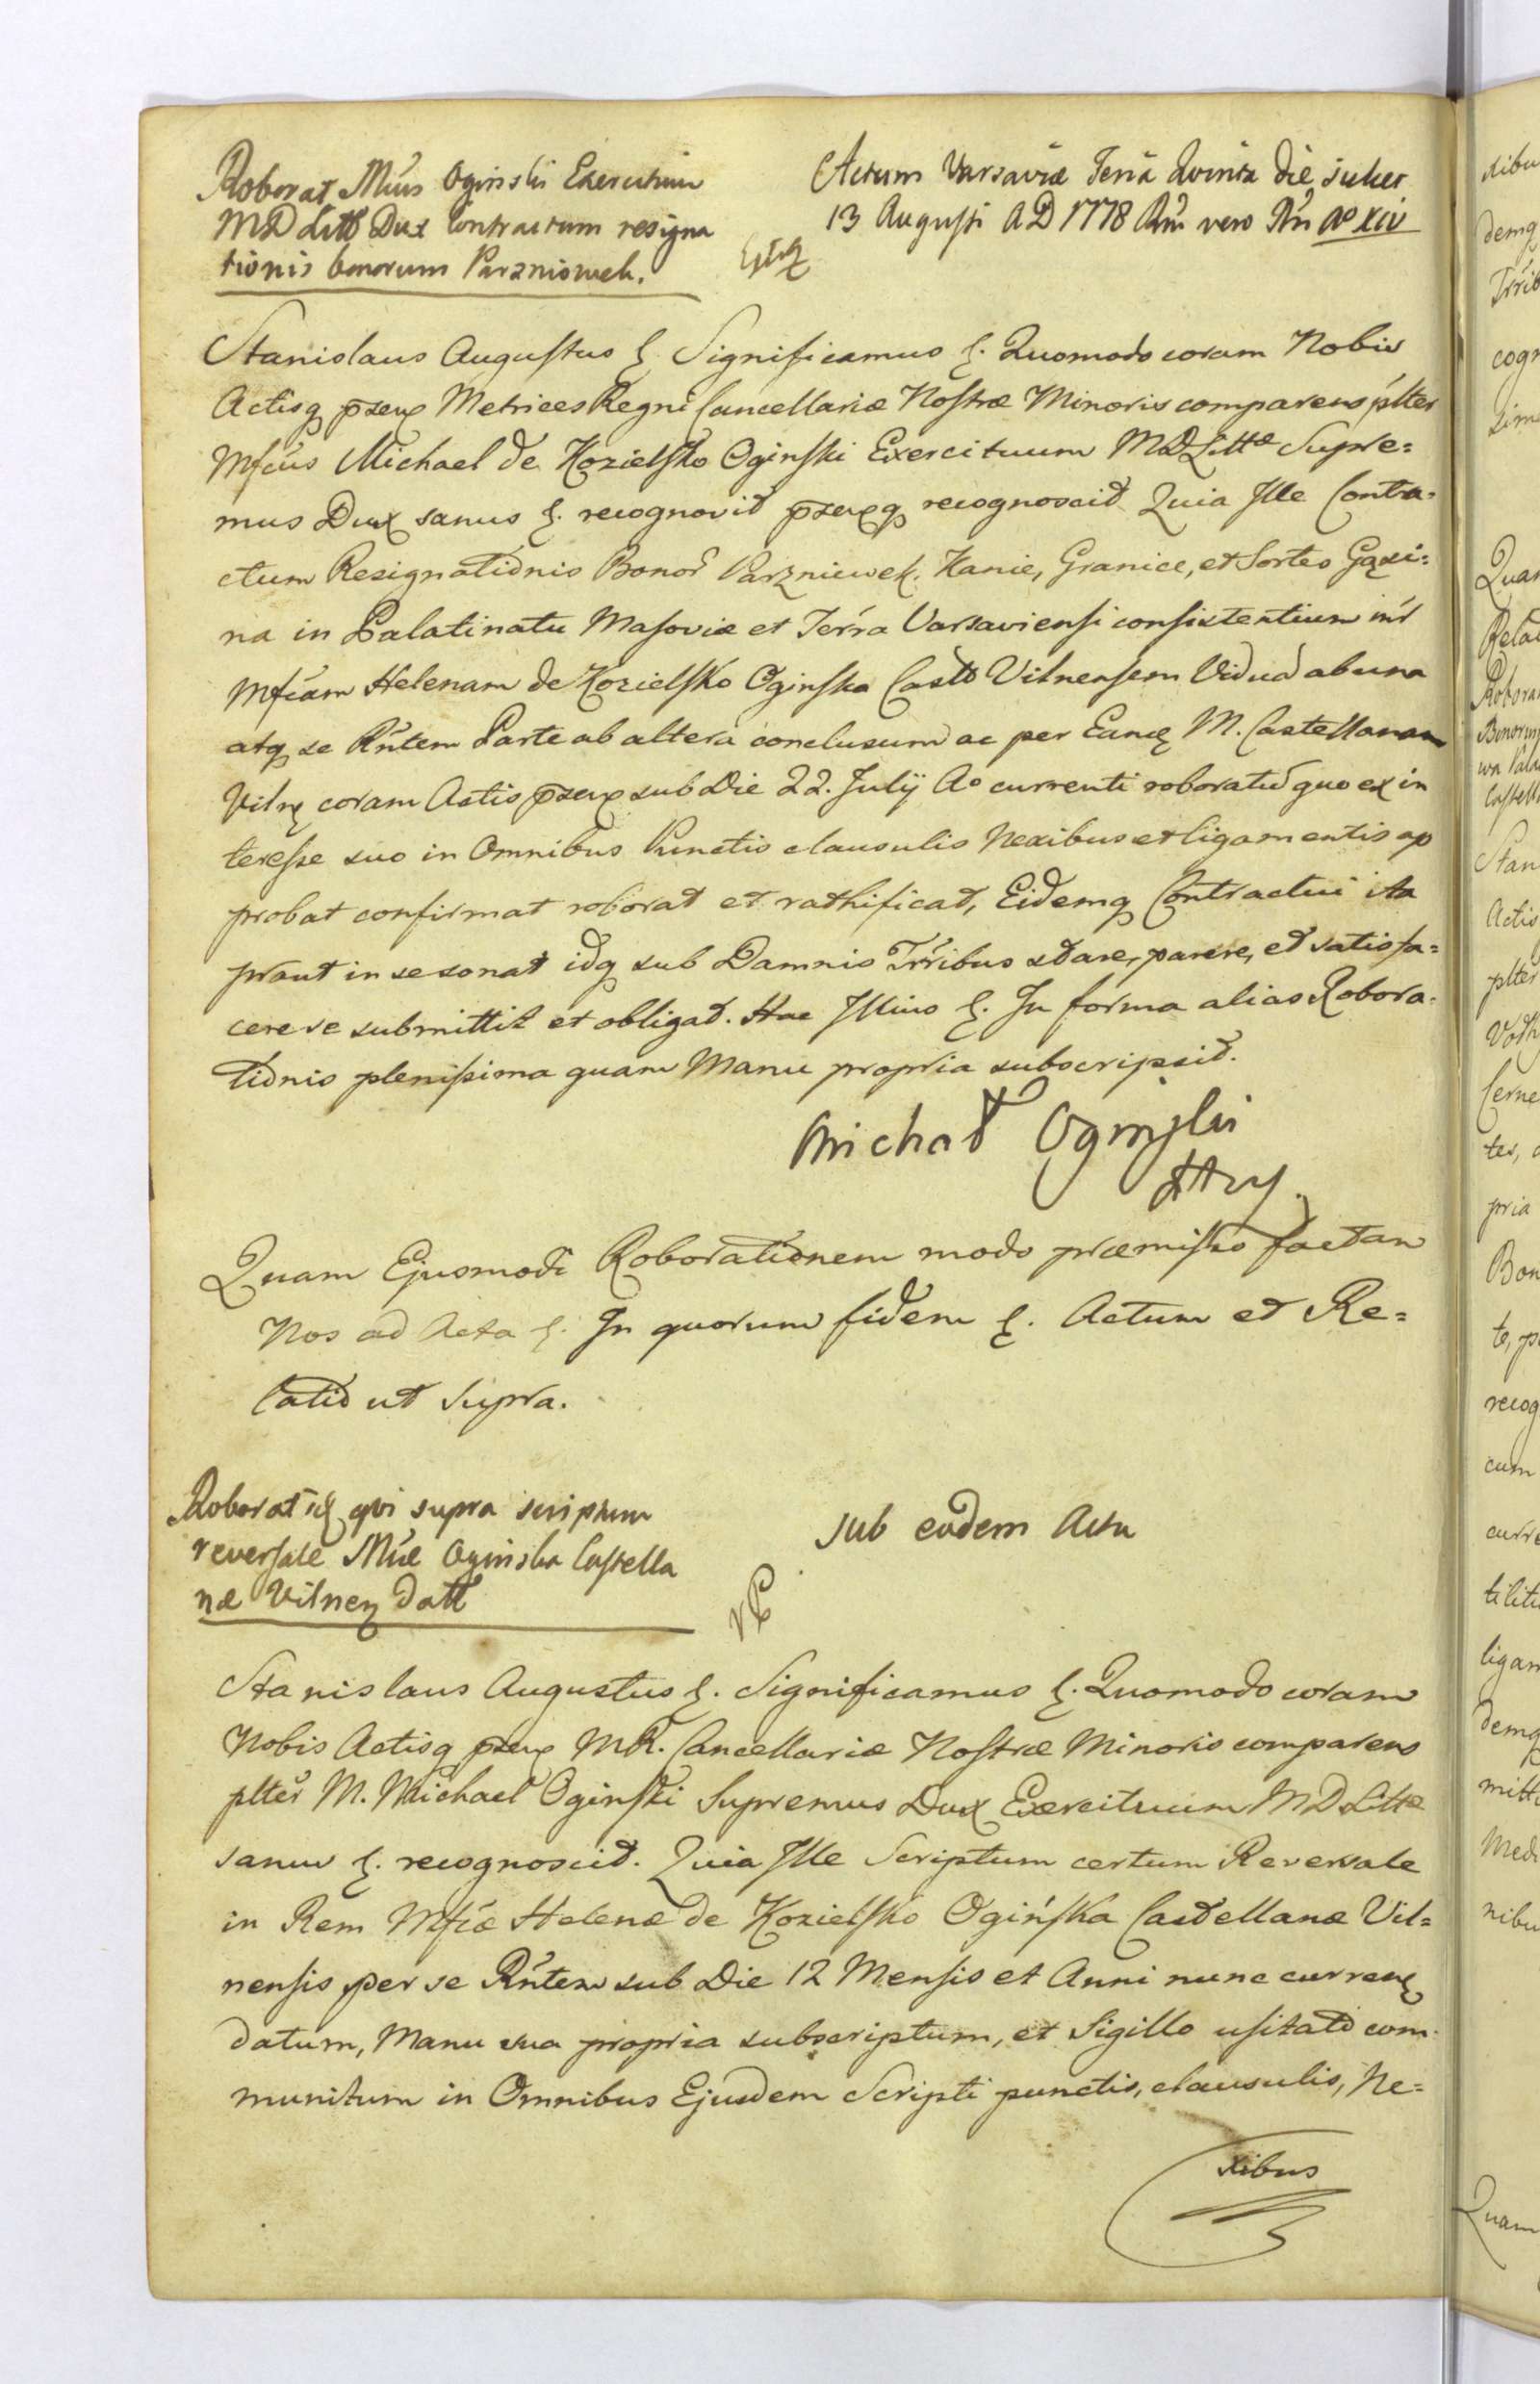 Roborat Mcus Oginski Exercituu
MD Litt Dux Contractum resigna
tionis bonorum Parzniewek.
Actum Varsaviæ Feria Quinta die scilicet
13 Augusti A D 1778 Rni vero Nri Ao XIV
Stanislaus Augustus &. Significamus &. Quomodo coram Nobis
Actisq pzeus Metrices Regni Cancellariæ Nostræ Minoris comparens plter
Mfcus Michael de Kozielsko Oginski Exercituum MD Littæ Supre=
mus Dux sanus &. recognovit pzeusq recognoscit Quia Ille Contra=
ctum Resignationis Bonor Parzniewek. Kanie, Granice, et Sortes Gąsi=
na in Palatinatu Masoviæ et Terra Varsaviensi consistentium int
Mfcam Helenam de Kozielsko Oginska Castt Vilnensem Viduã ab una
atq se Rntem Parte ab altera conclusum ac per Eande M. Castellanam
Vilne coram Actis pzeus sub Die 22. Julÿ Ao currenti roboratũ quo ex in
teresse suo in Omnibus Punctis clausulis Nexibus et ligamentis ap
probat confirmat roborat et rathificat, Eidemq Contractui ita
prout in se sonat idq sub Damnis Trribus stare, parere, et satisfa=
cere se submittit et obligat. Hac Illius &. In forma alias Robora=
tionis plenissima quam Manu propria subscripsit.
Michał Ogiński
HWL
Quam Ejusmodi Roborationem modo præmisso factam
Nos ad Acta &. In quorum fidem &. Actum et Re=
latio ut Supra.
Roborat id qui supra scriptum
reversale Mcæ Oginska Castella
næ Vilnen datt
sub eodem Actu
Stanislaus Augustus &. Significamus &. Quomodo coram
Nobis Actisq pzeus MR. Cancellariæ Nostræ Minoris comparens
plter M. Michael Oginski Supremus Dux Exercituum MD Littæ
sanus &. recognoscit. Quia Ille Scriptum certum Reversale
in Rem Mfcæ Helenæ de Kozielsko Ogińska Castellanæ Vil=
nensis per se Rntem sub Die 12 Mensis et Anni nunc curren
datum, Manu sua propria subscriptum, et Sigillo usitato com
munitum in Omnibus Ejusdem Scripti punctis, clausulis, Ne=
xibus